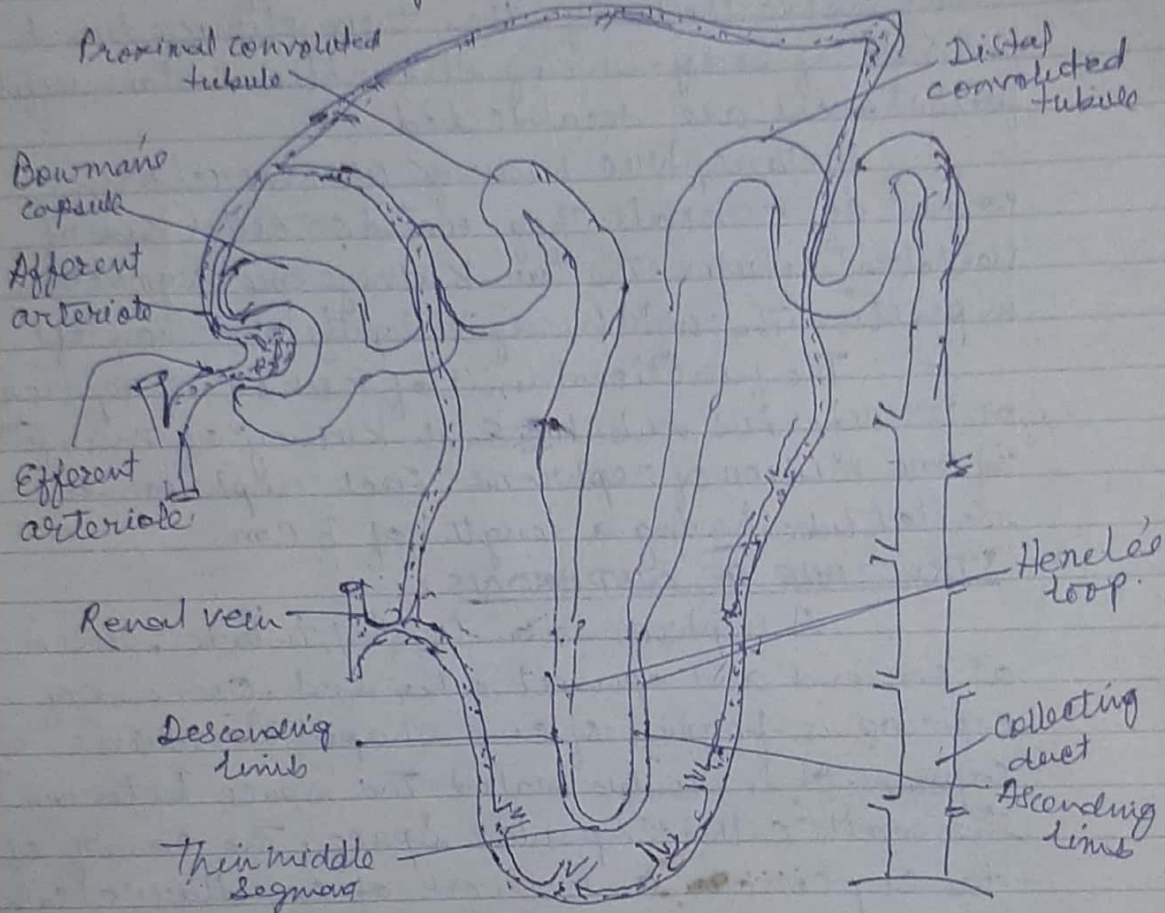 Proximal convoluted
tubule
Distal
convoluted
tubule
Bowman's
capsule
Afferent
arteriole
Efferent
arteriole
Renal vein
Henele's
loop.
Descending
limb
Collecting
duct
Ascending
limb
Thin middle